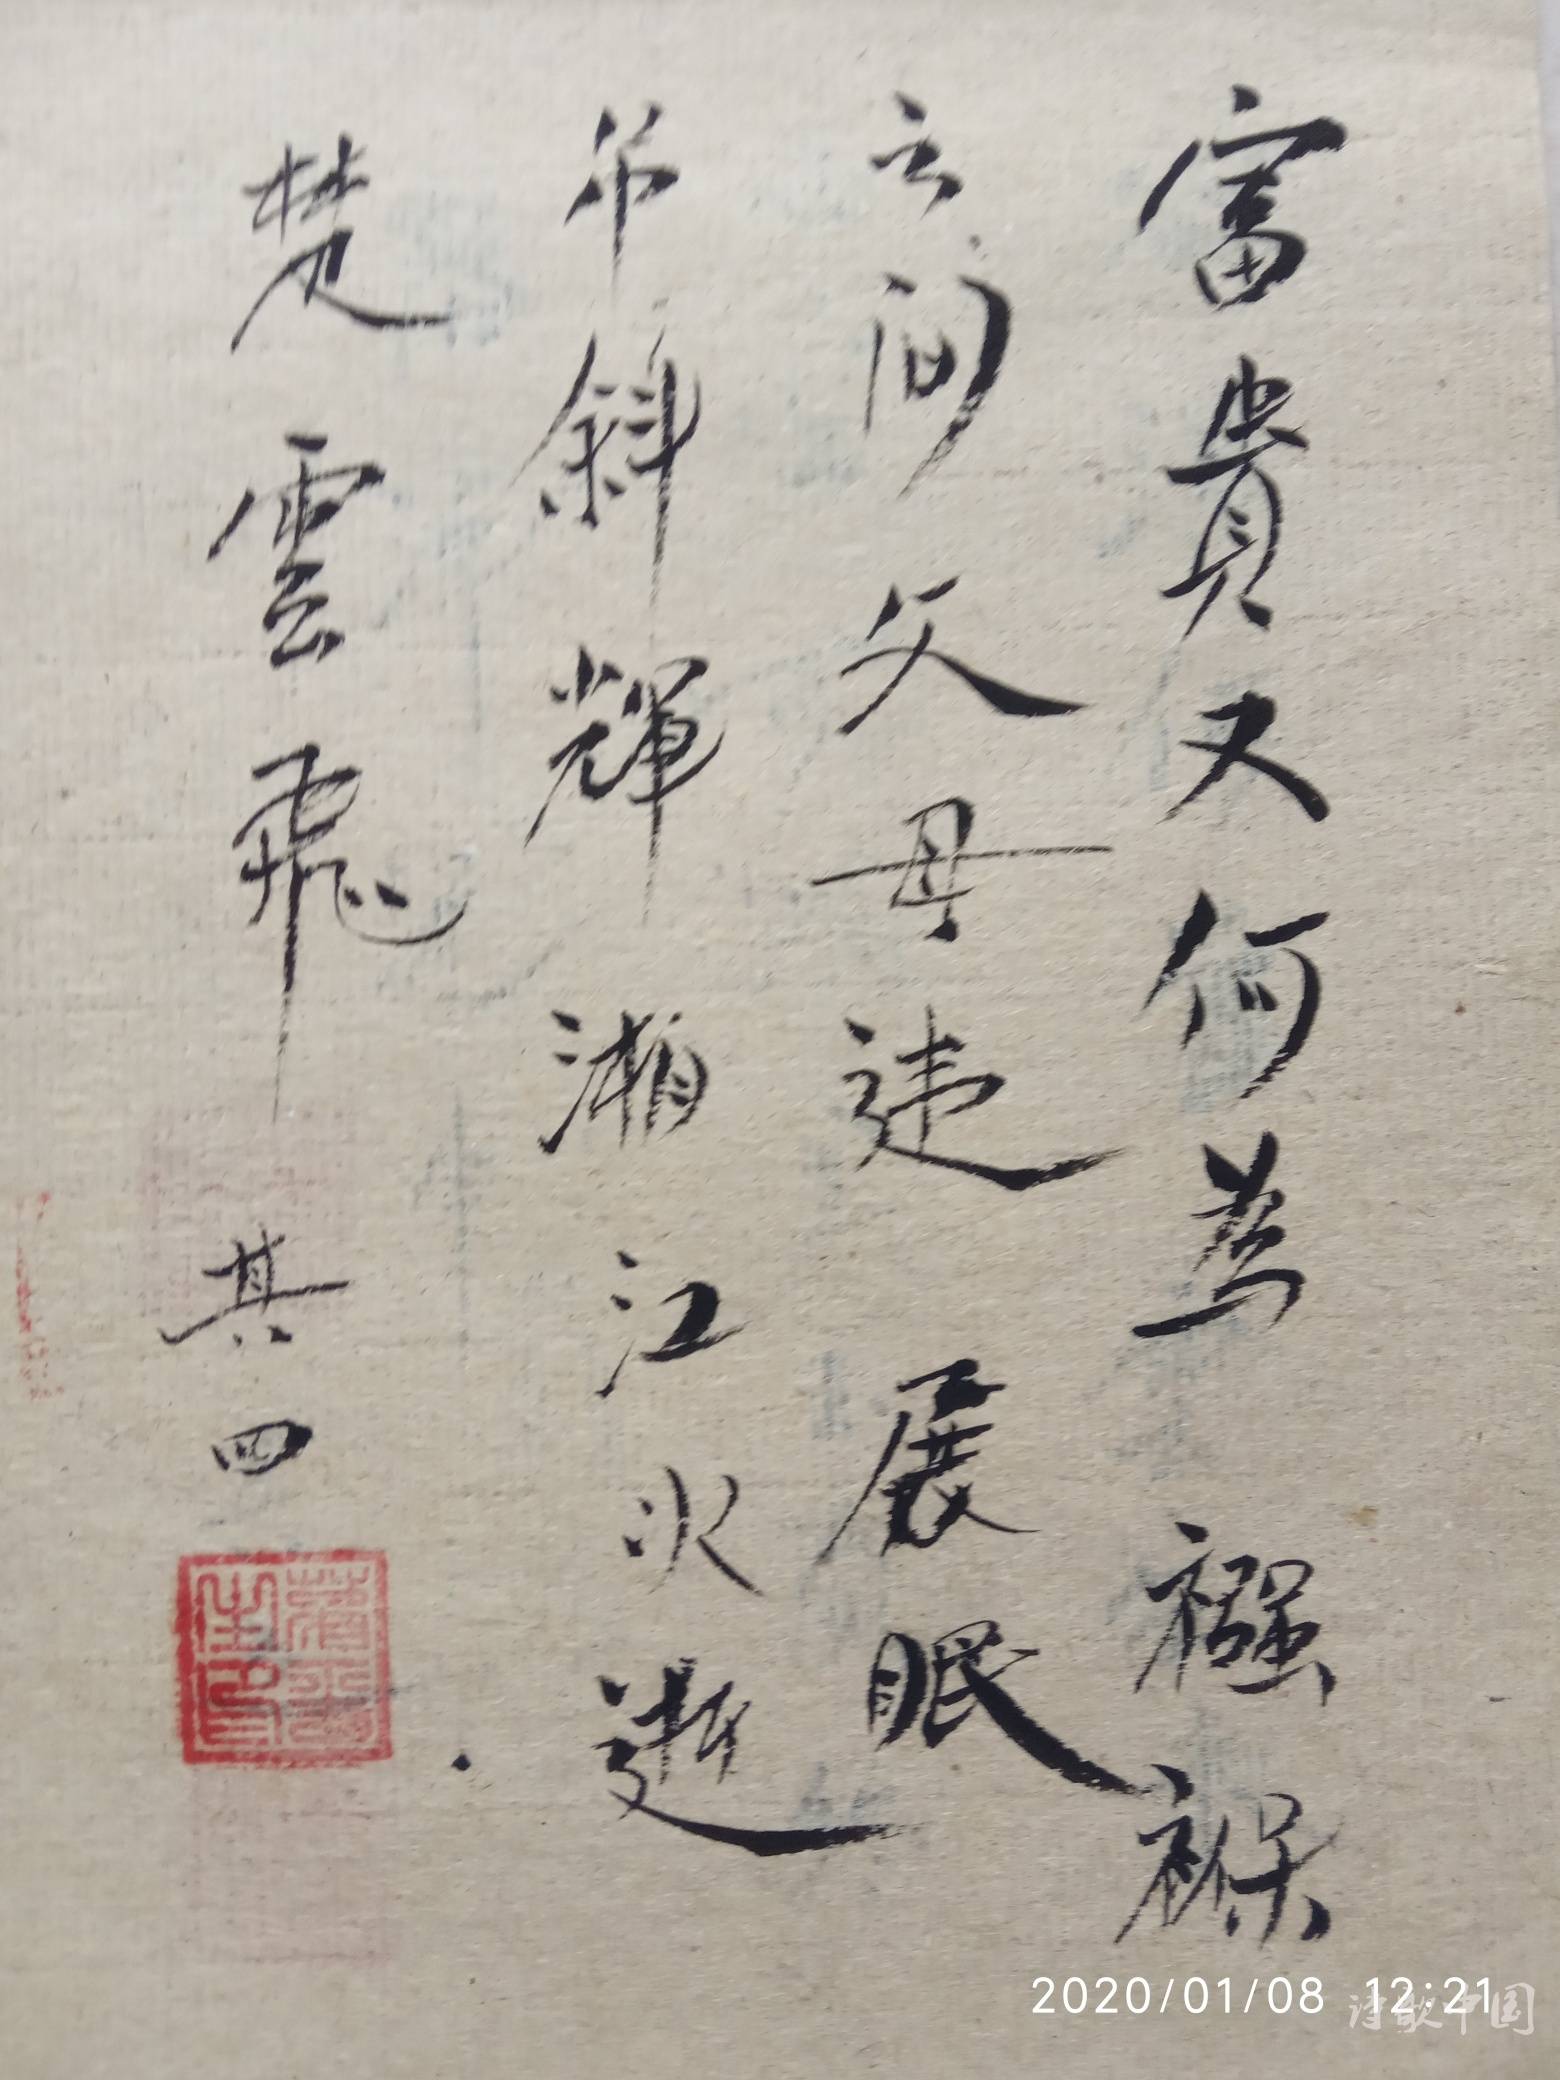 富貴又何為 襁褓
之间父母违 展眼
吊斜輝 湘江水逝
楚雲飛 其四
2020/01/08 12:21
诗歌中国